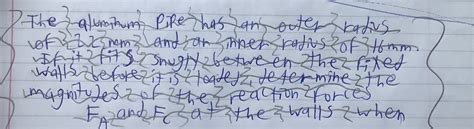 The aluminum Pipe has an outer radius
of 32 mm and an inner radius of 16mm.
If it fits snugly between the fixed
walls before it is loaded, determine the
magnitudes of the reaction forces
F_A and F_C at the walls when